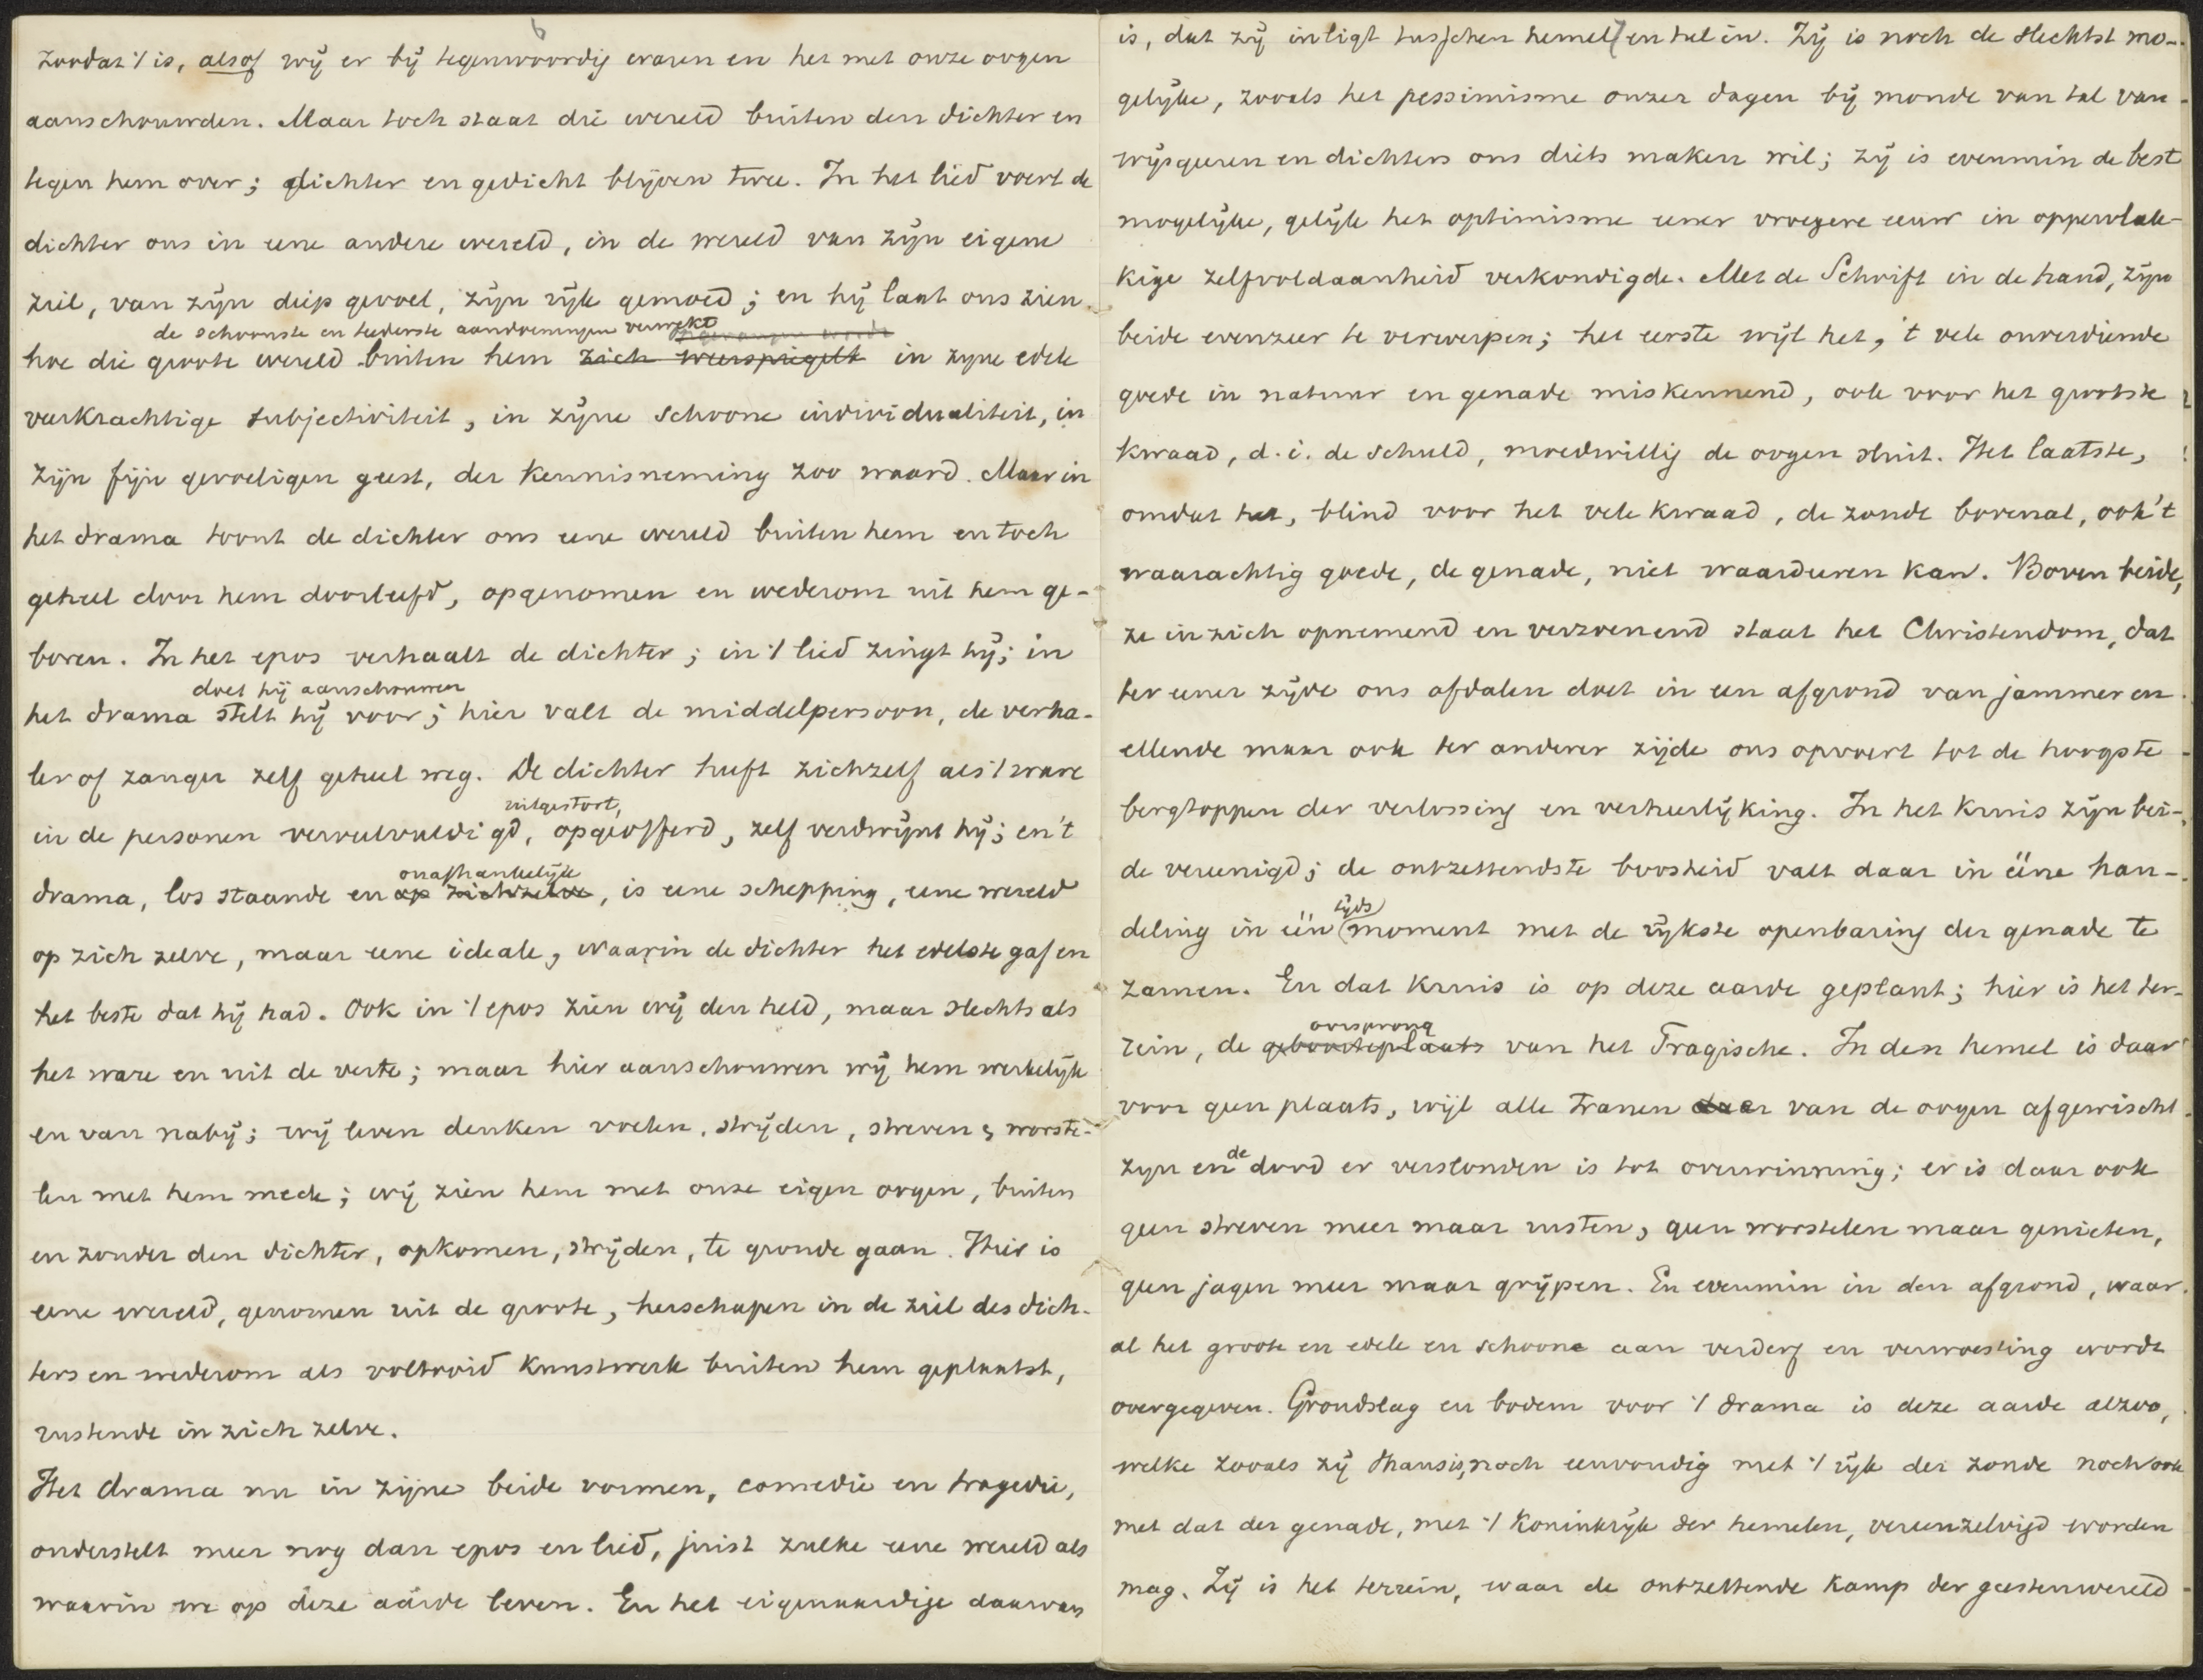 6
zoodat 't is, alsof wij er bij tegenwoordig waren en het met onze oogen
aanschouwden. Maar toch staat die wereld buiten den dichter en
tegen hem over; dichter en gedicht blijven twee. In het lied voert de
dichter ons in eene andere wereld, in de wereld van zijn eigene
ziel, van zijn diep gevoel, zijn rijk gemoed; en hij laat ons zien
de schoonste en teederste aandoeningen verwekt
hoe die groote wereld buiten hem zich weerspiegelt in zijne edele
veerkrachtige subjectiviteit, in zijne schoone individualiteit, in
zijn fijn gevoeligen geest, der kennisneming zoo waard. Maar in
het drama toont de dichter ons eene wereld buiten hem en toch
geheel door hem doorleefd, opgenomen en wederom uit hem ge-
boren. In het epos verhaalt de dichter; in 't lied zingt hij; in
doet hij aanschouwen
het drama stelt hij voor; hier valt de middelpersoon, de verha-
ler of zanger zelf geheel weg. De dichter heeft zichzelf als 't ware
uitgestort,
in de personen verveelvuldigd, opgeofferd, zelf verdwijnt hij; en 't
onafhankelijk
drama, los staande en op zichzelve, is eene schepping, eene wereld
op zich zelve, maar eene ideale, waarin de dichter het edelste gaf en
het beste dat hij had. Ook in 't epos zien wij den held, maar slechts als
het ware en uit de verte; maar hier aanschouwen wij hem werkelijk
en van nabij; wij leven denken voelen, strijden, streven, worste-
len met hem mede; wij zien hem met onze eigen oogen, buiten
en zonder den dichter, opkomen, strijden, te gronde gaan. Hier is
eene wereld, genomen uit de groote, herschapen in de ziel des dich-
ters en wederom als voltooid kunstwerk buiten hem geplaatst,
rustende in zich zelve.
Het drama nu in zijne beide vormen, comedie en tragedie,
onderstelt meer nog dan epos en lied, juist zulke eene wereld als
waarin we op deze aarde leven. En het eigenaardige daarvan
is, dat zij inligt tusschen hemel en hel in. Zij is noch de slechtst mo-
gelijke, zooals het pessimisme onzer dagen bij monde van tal van
wijsgeeren en dichters ons diets maken wil; zij is evenmin de best
mogelijke, gelijk het optimisme eener vroegere eeuw in oppervlak-
kige zelfvoldaanheid verkondigde. Met de Schrift in de hand, zijn
beide evenzeer te verwerpen; het eerste wijl het, 't vele onverdiende
goede in natuur en genade miskennend, ook voor het grootste
kwaad, d.i. de schuld, moedwillig de oogen sluit. Het laatste,
omdat het, blind voor het vele kwaad, de zonde bovenal, ook 't
waarachtig goede, de genade, niet waardeeren kan. Boven beide,
ze in zich opnemend en verzoenend staat het Christendom, dat
ter eener zijde ons afdalen doet in een afgrond van jammer en
ellende maar ook ter anderer zijde ons opvoert tot de hoogste
bergtoppen der verlossing en verheerlijking. In het kruis zijn bei-
de vereenigd; de ontzettendste boosheid valt daar in ééne han-
tijds
deling in één moment met de rijkste openbaring der genade te
zamen. En dat kruis is op deze aarde geplant; hier is het ter-
oorsprong
rein, de geboorteplaats van het Tragische. In den hemel is daar
voor geen plaats, wijl alle tranen daar van de oogen afgewischt
de
zijn en dood er verslonden is tot overwinning; er is daar ook
geen streven meer maar rusten, geen worstelen maar genieten,
geen jagen meer maar grijpen. En evenmin in den afgrond, waar
al het groote en edele en schoone aan verderf en verwoesting wordt
overgegeven. Grondslag en bodem voor 't drama is deze aarde alzoo,
welke zooals zij thans is, noch eenvoudig met 't rijk der zonde noch ook
met dat der genade, met 't koninkrijk der hemelen, vereenzelvigd worden
mag. Zij is het terrein, waar de ontzettende kamp der geestenwereld